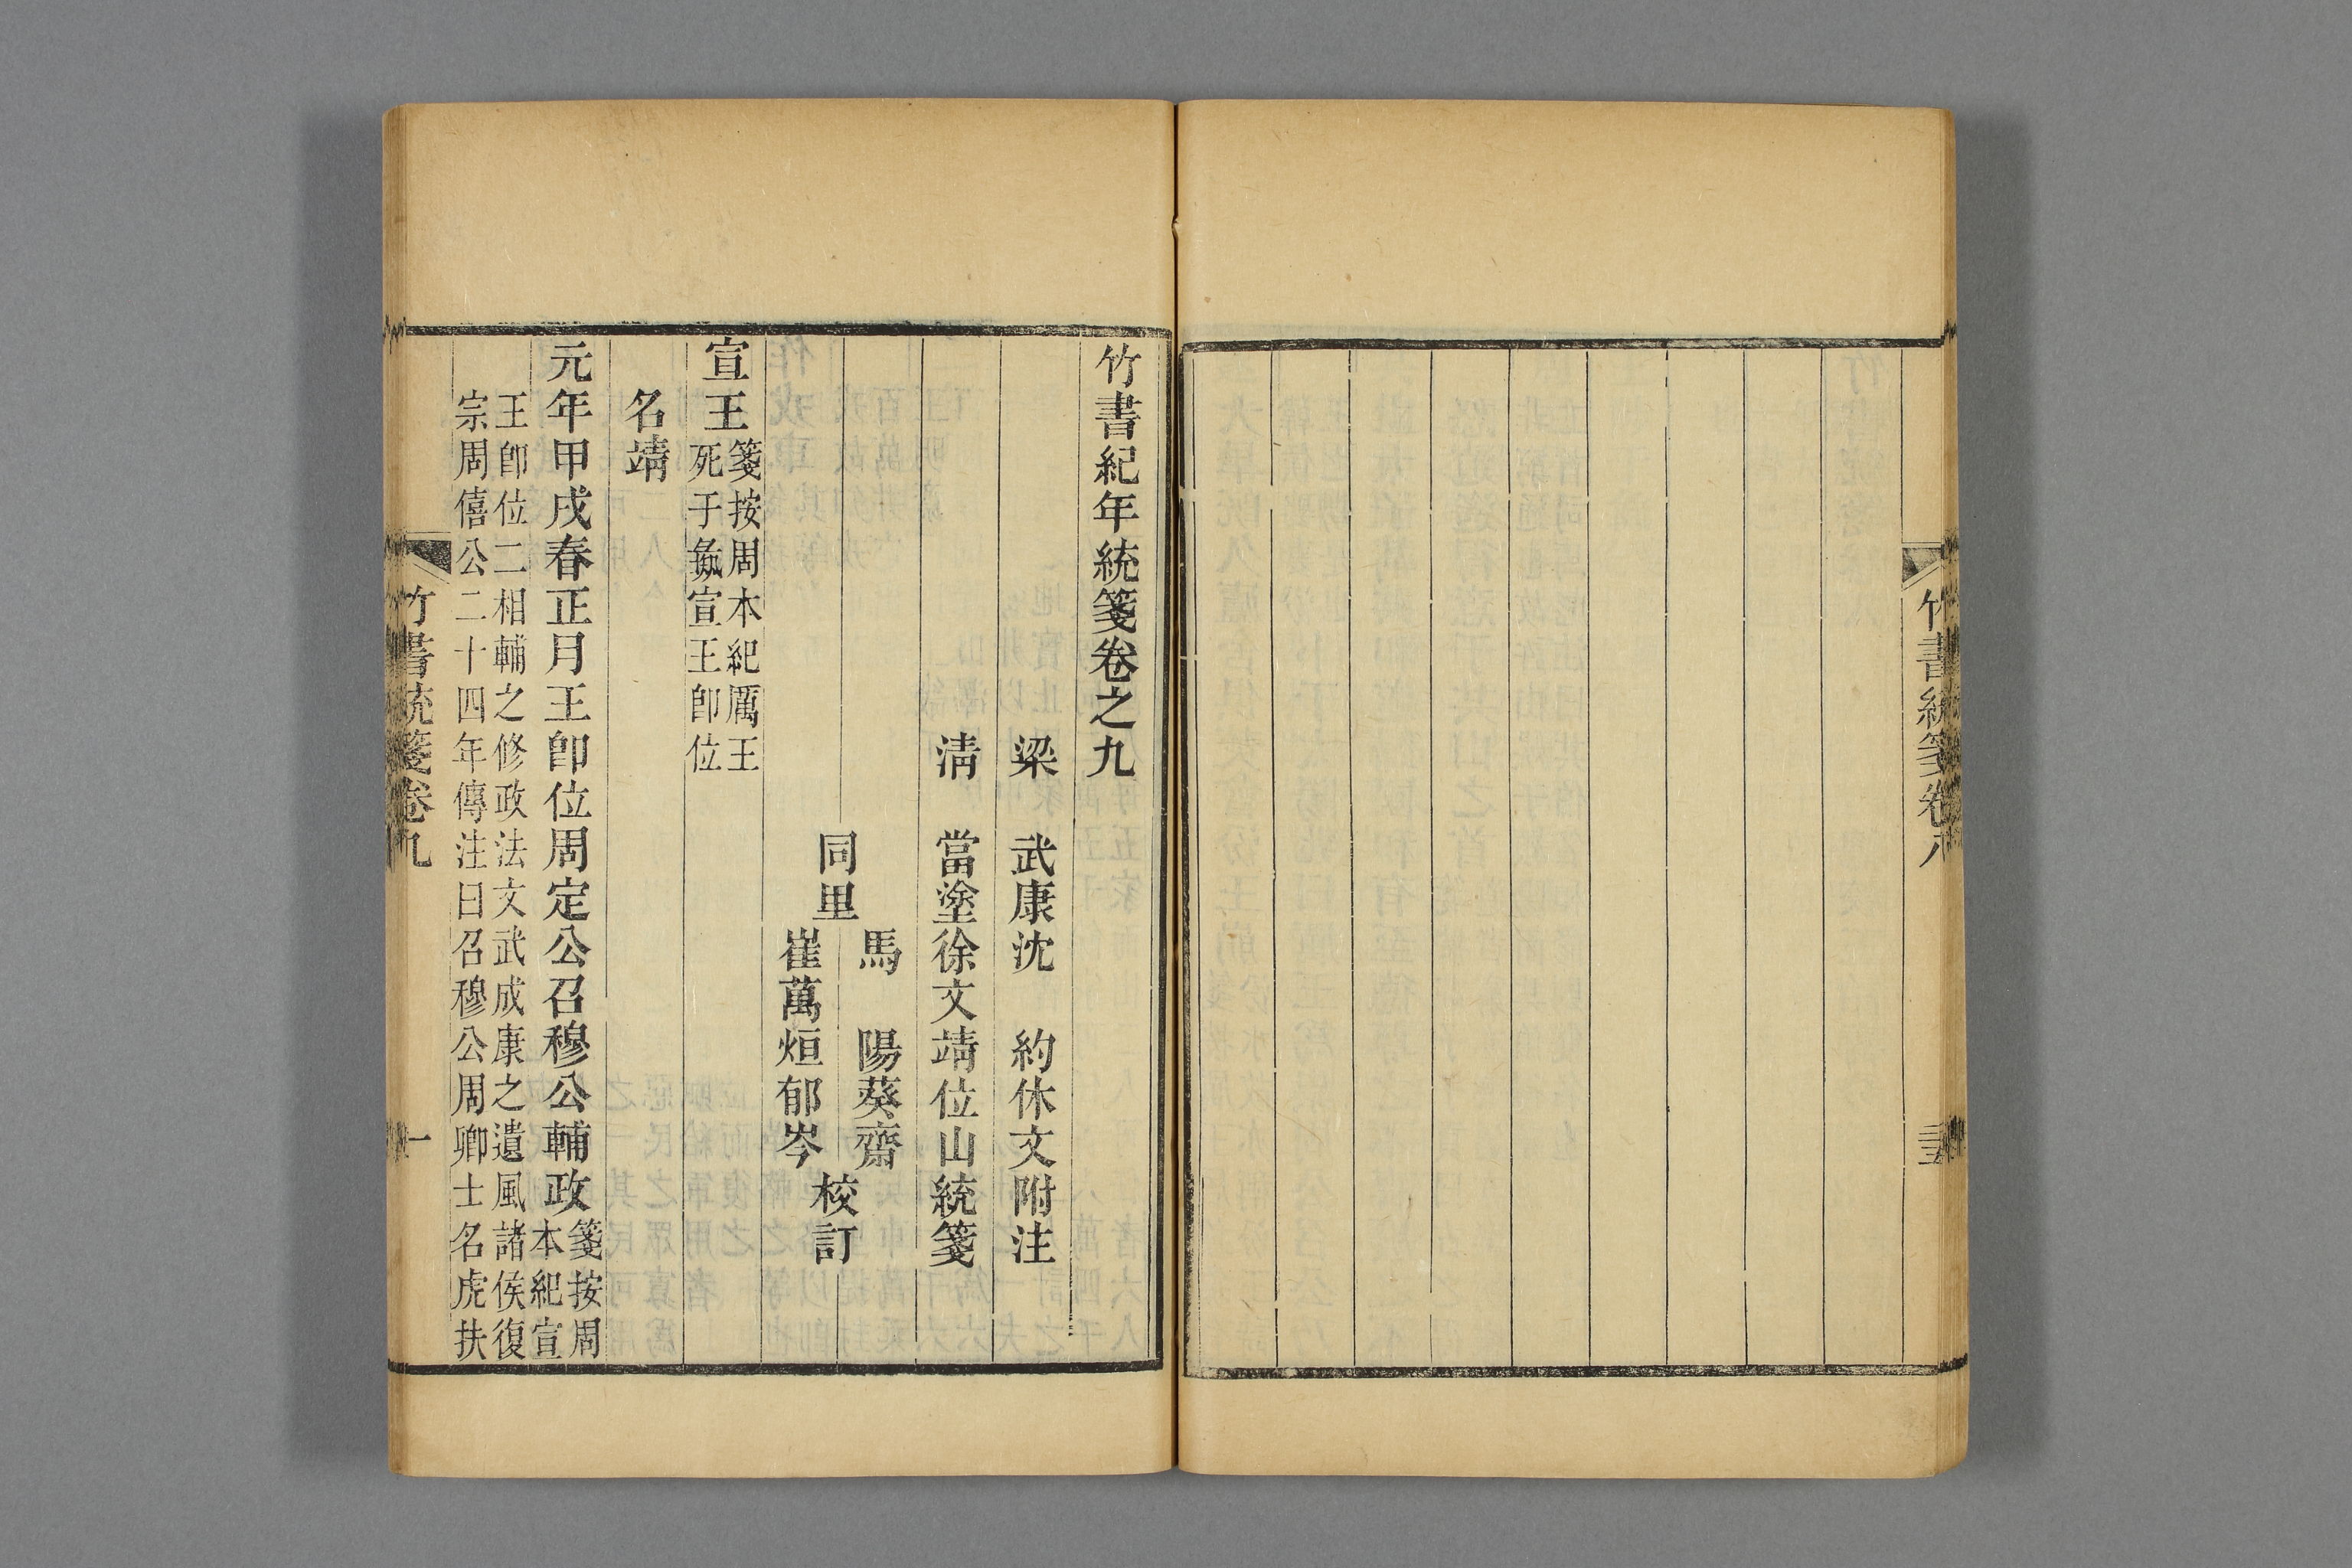 竹書統箋卷八
竹書紀年統箋卷之九
梁 武康沈 約休文附注
清 當塗徐文靖位山統箋
馬 陽葵齋
同里 校訂
崔萬烜郁岑
宣王箋按周本紀厲王
死于彘宣王卽位
名靖
元年甲戌春正月王卽位周定公召穆公輔政箋按周
本紀宣
王卽位二相輔之修政法文武成康之遺風諸侯復
宗周僖公二十四年傳注曰召穆公周卿士名虎扶
竹書統箋卷九
一